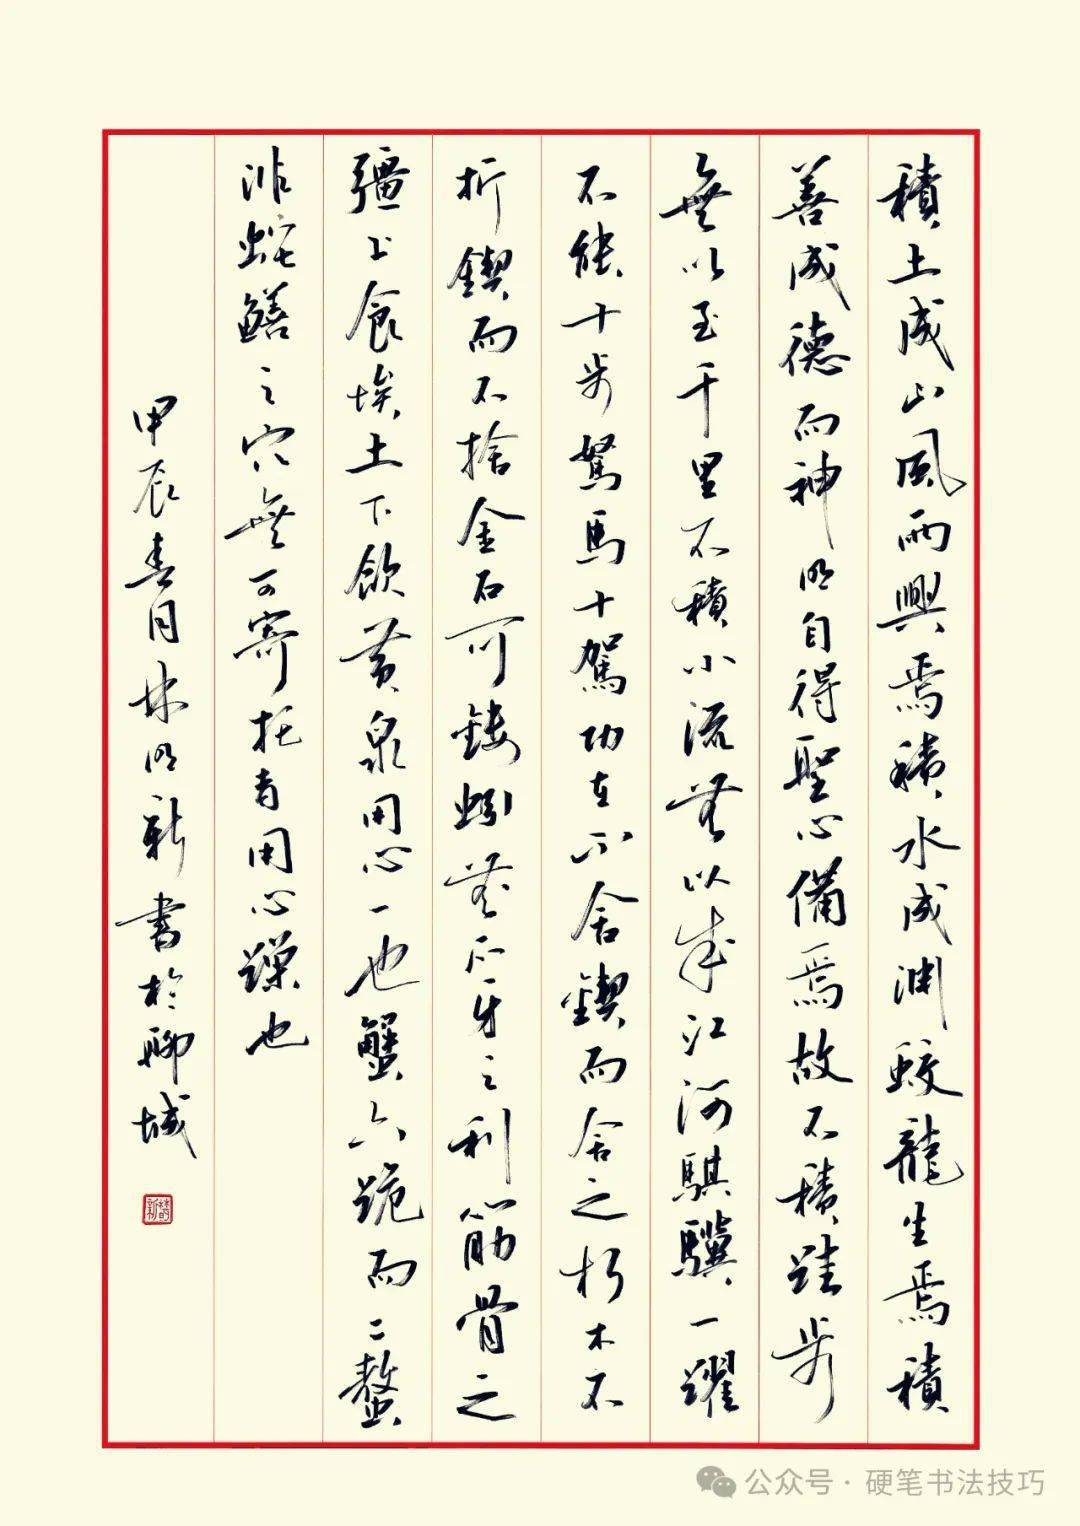 積土成山風雨興焉積水成渊蛟龍生焉積
善成德而神明自得聖心備焉故不積跬步
無以至千里不積小流無以成江河騏驥一躍
不能十步駑馬十駕功在不舍鍥而舍之朽木不
折鍥而不捨金石可鏤蚓無爪牙之利筋骨之
彊上食埃土下飲黄泉用心一也蟹六跪而二螯
非蛇鱔之穴無可寄托者用心躁也
甲辰春月林明新書於聊城
公众号·硬笔书法技巧